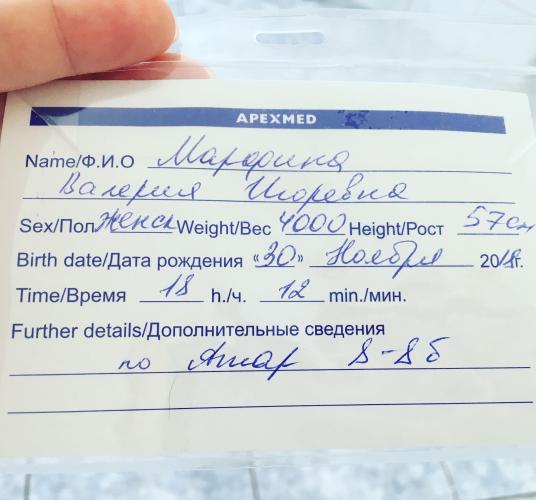 APEXMED
Name/Ф.И.О Марфина
Валерия Игоревна
Sex/Пол женск Weight/Вес 4000 Height/Рост 57см
Birth date/Дата рождения «30» Ноября 2018г.
Time/Время 18 h./ч. 12 min./мин.
Further details/Дополнительные сведения
по Апгар 8-8б